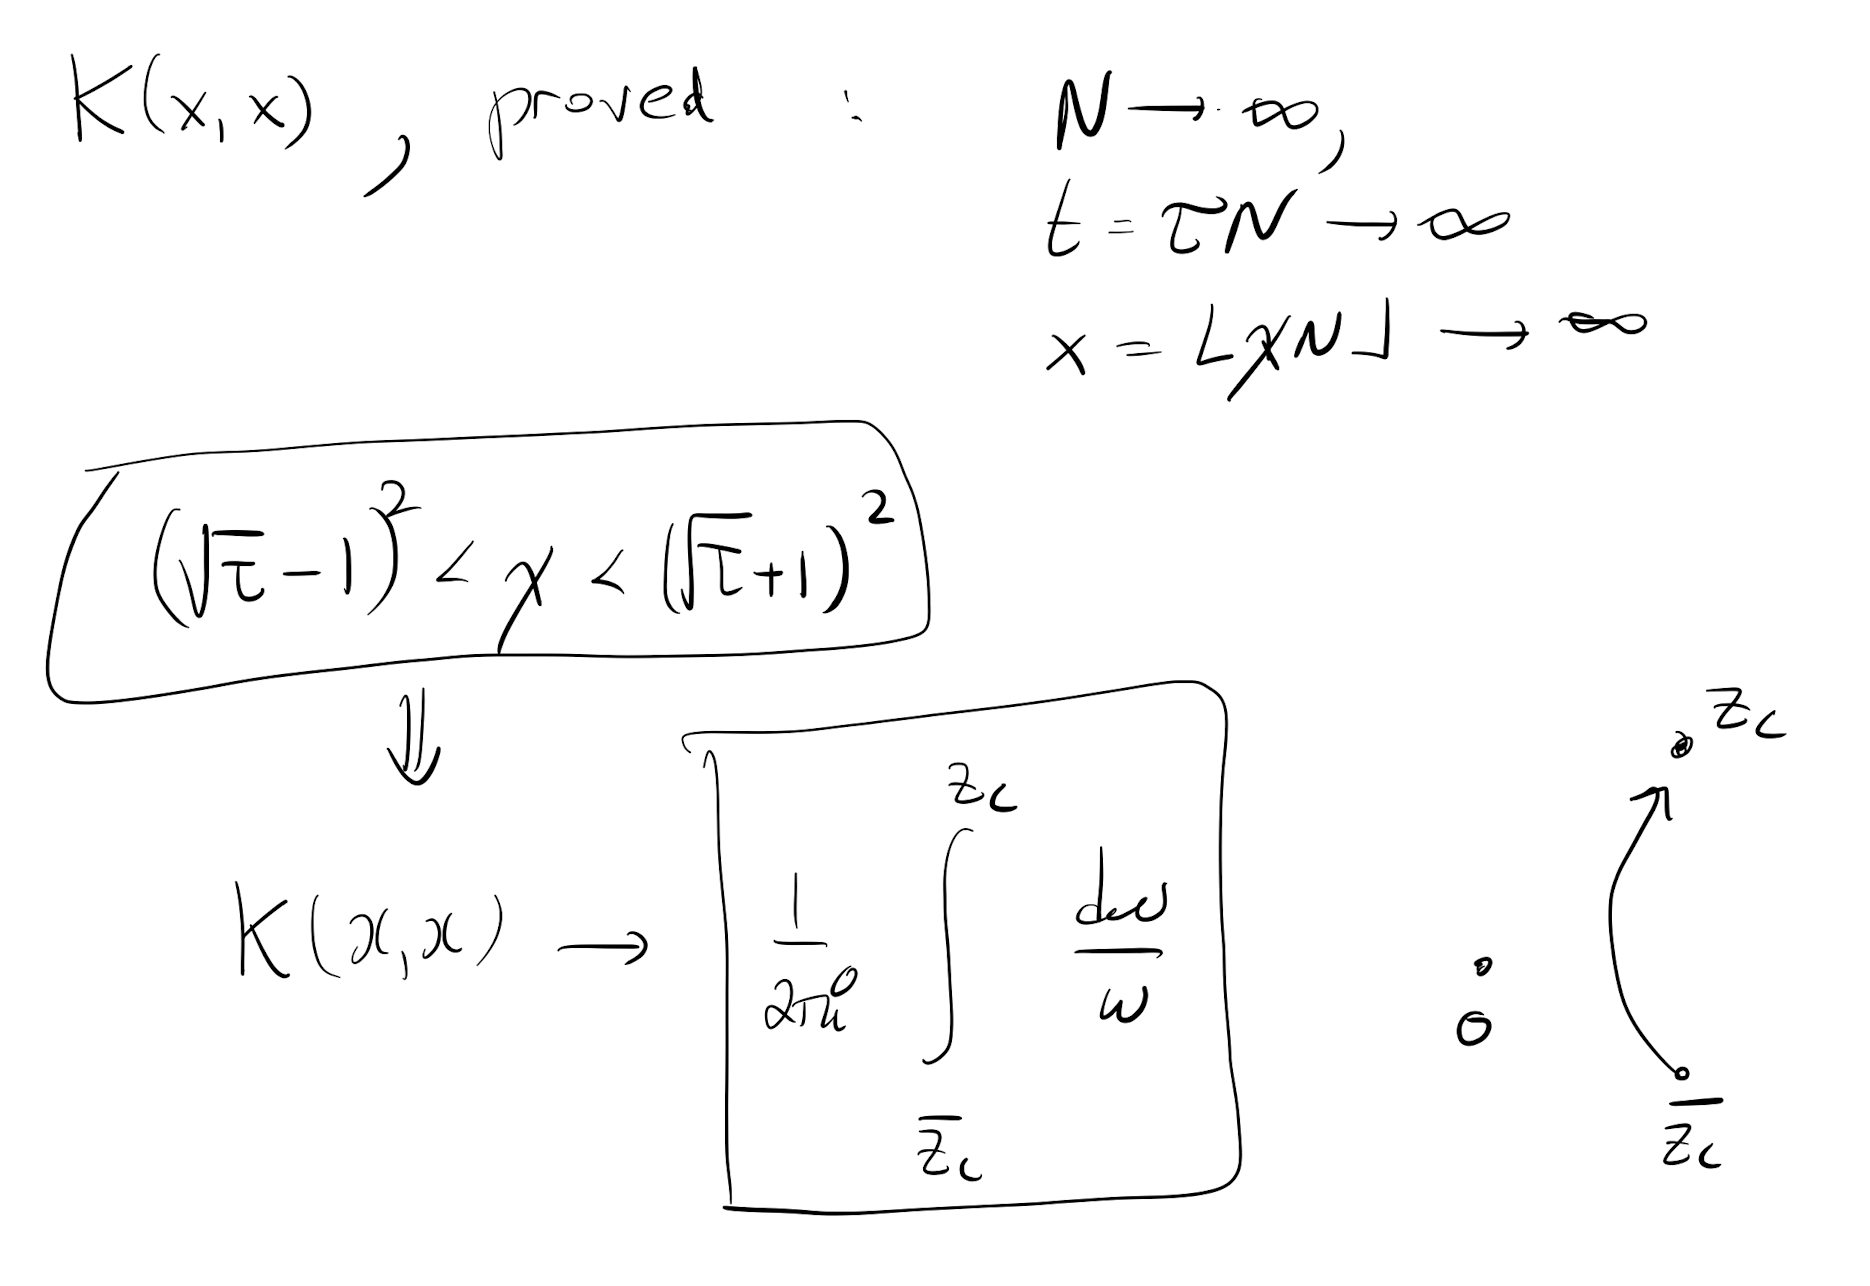 K(x,x), proved : N → ∞,
t = τN → ∞
x = ⌊χN⌋ → ∞
(√τ-1)² < χ < (√τ+1)²
⇓
K(x,x) → 1/2πi ∫_{z̄c}^{zc} dw/w
zc
0
z̄c